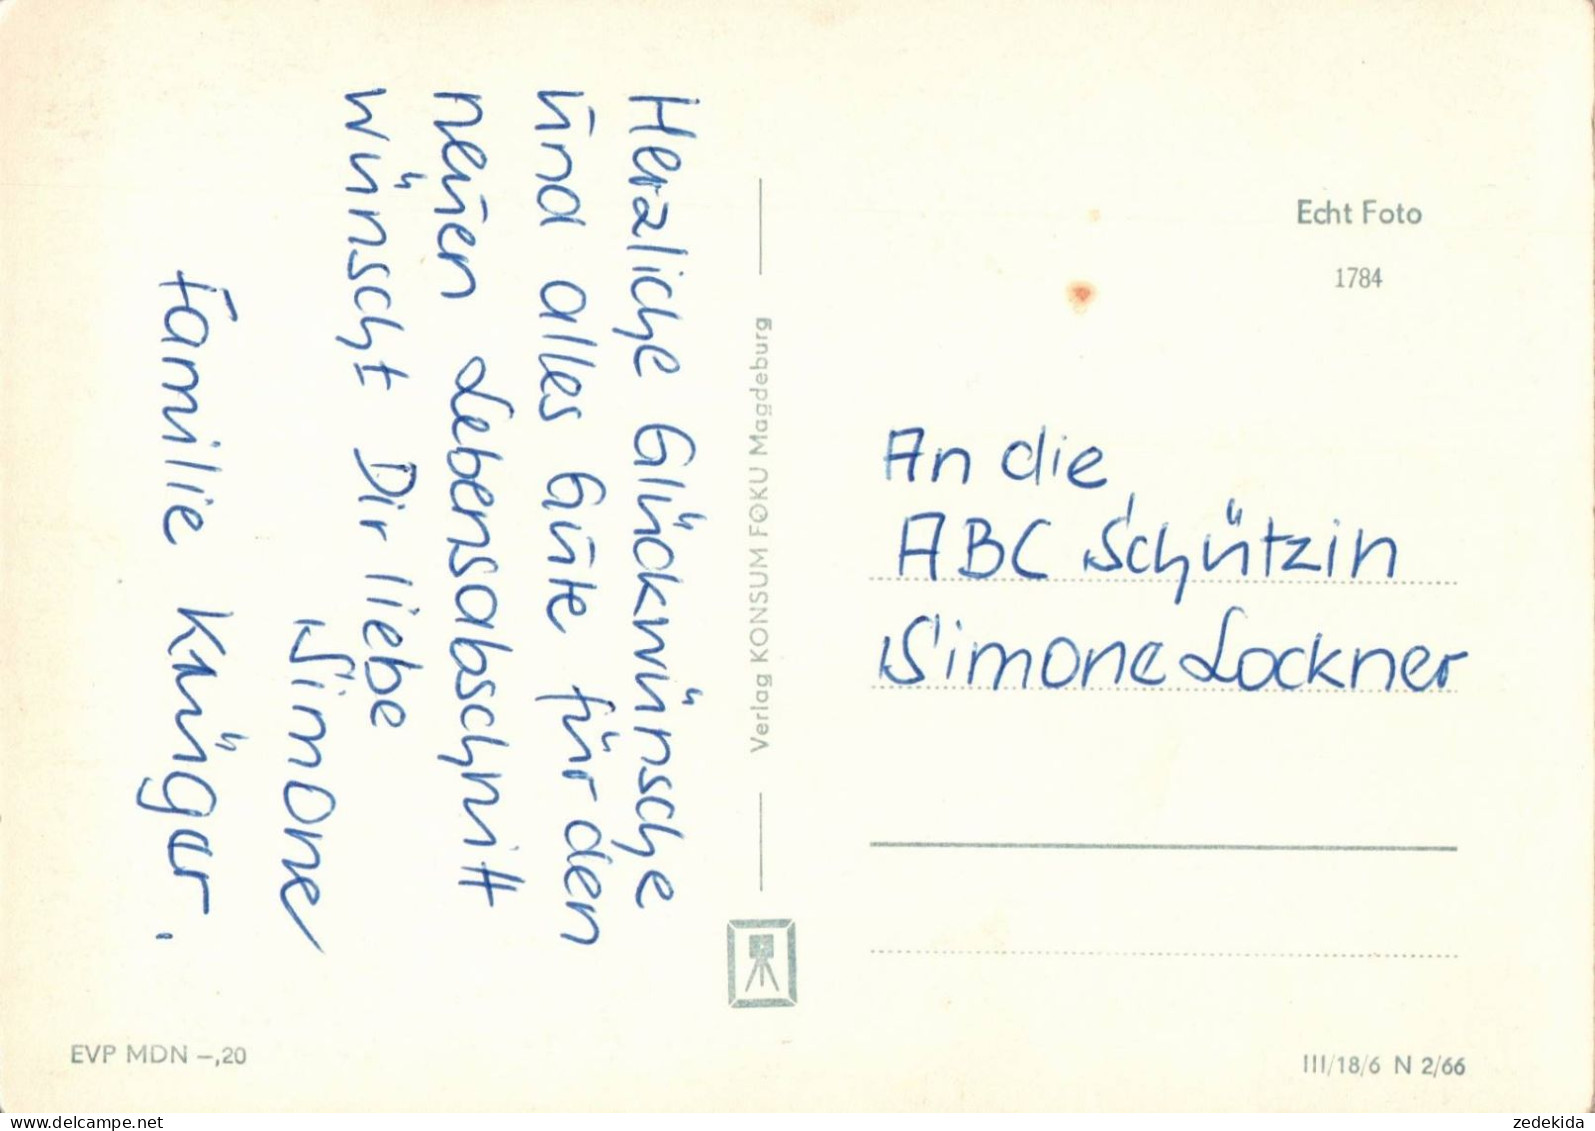 Herzliche Glückwünsche
und alles Gute für den
neuen Lebensabschnitt
wünscht Dir liebe
Simone
Familie Krüger.
Verlag KONSUM FOKU Magdeburg
Echt Foto
1784
An die
ABC Schützin
Simone Lockner
EVP MDN –,20
III/18/6 N 2/66
delcampe.net
zedekida